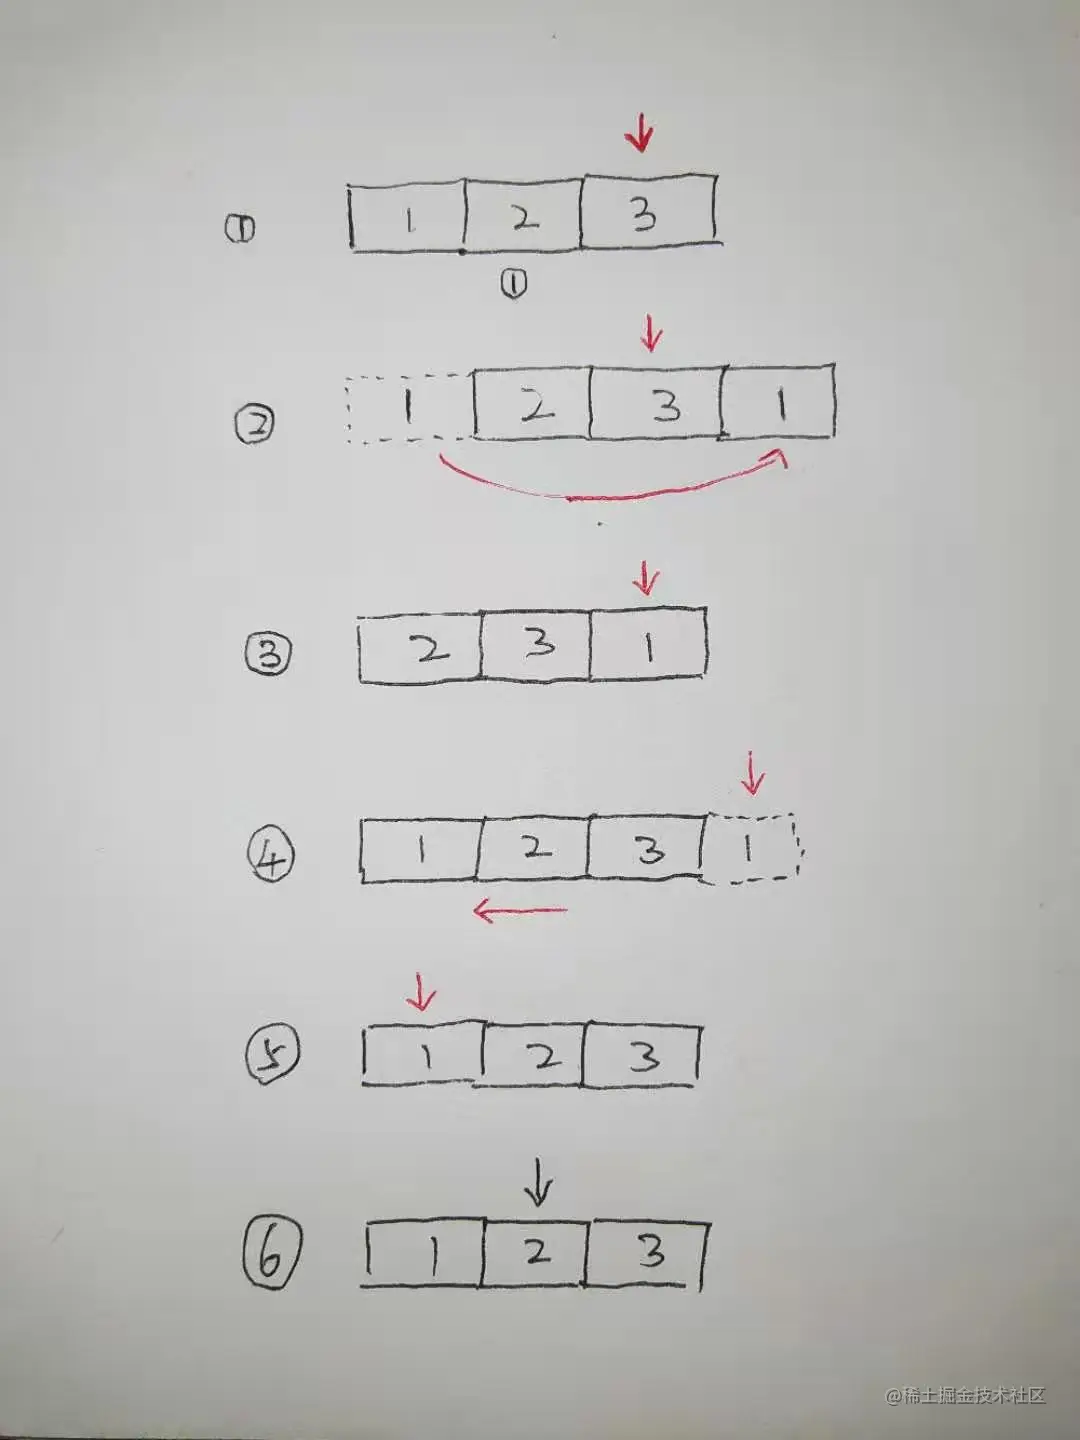 ① 1 2 3
①
② 1 2 3 1
③ 2 3 1
④ 1 2 3 1
⑤ 1 2 3
⑥ 1 2 3
@稀土掘金技术社区